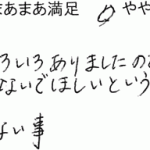 まあまあ満足 やや
ろいろありましたの
ないでほしいという
ない事